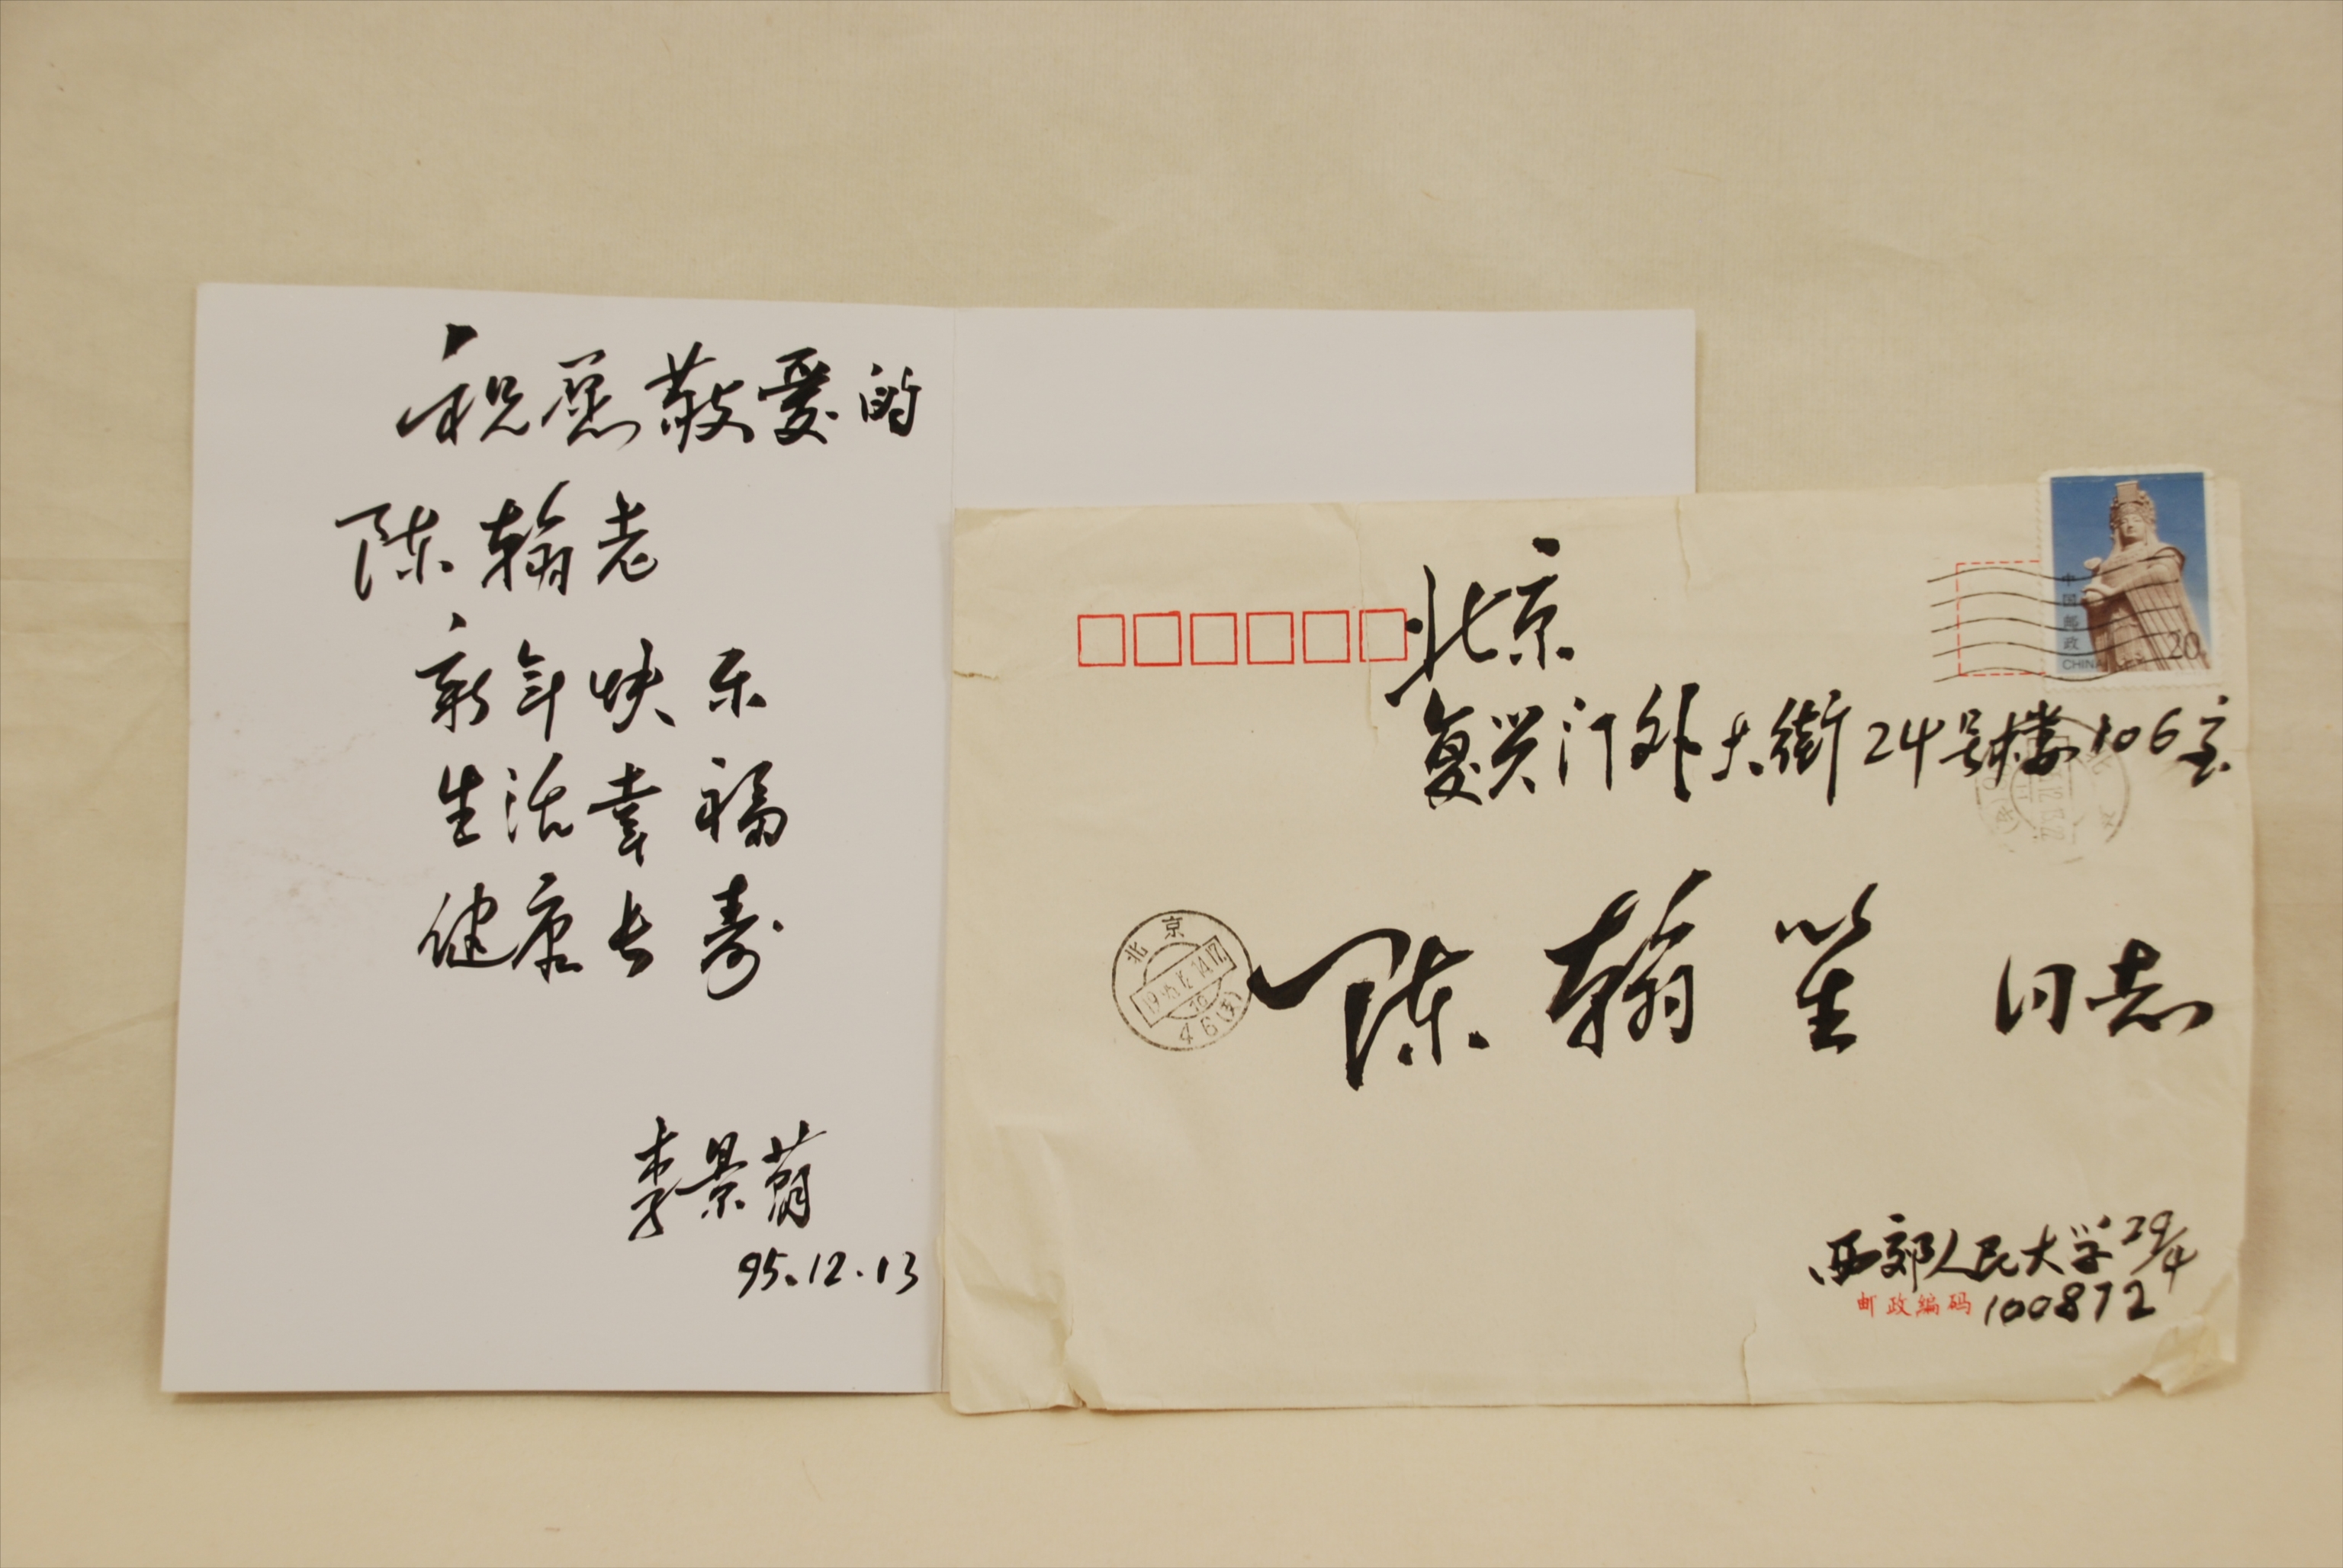 祝愿敬爱的
陈翰老
新年快乐
生活幸福
健康长寿
李景萌
95.12.13
中国邮政
CHINA
20
北京
复兴门外大街24号楼106室
陈翰笙 同志
北京
西郊人民大学29/4
邮政编码 100872